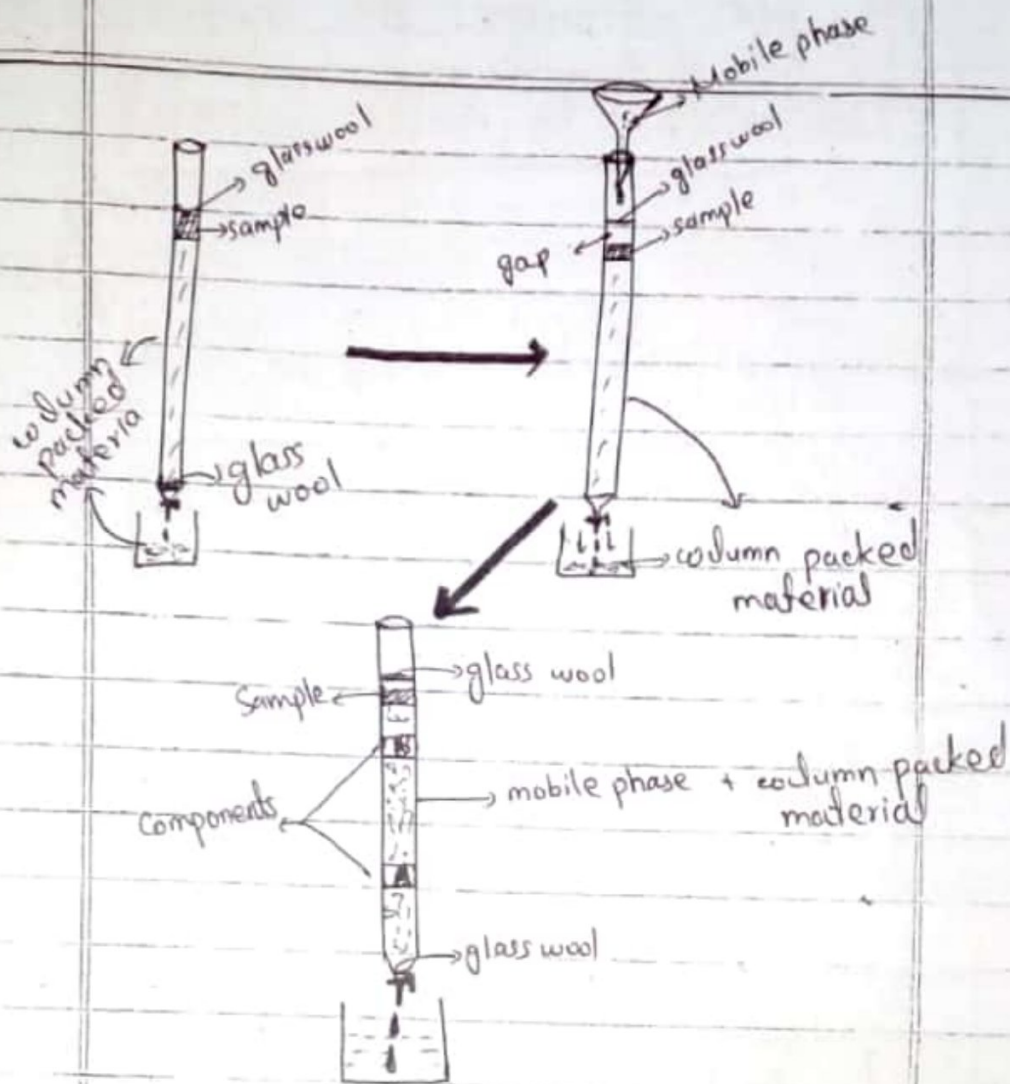 glasswool
sample
column
packed
materia
glass
wool
Mobile phase
glasswool
sample
gap
column packed
material
glass wool
Sample
B
Components
mobile phase + column packed
material
A
glass wool